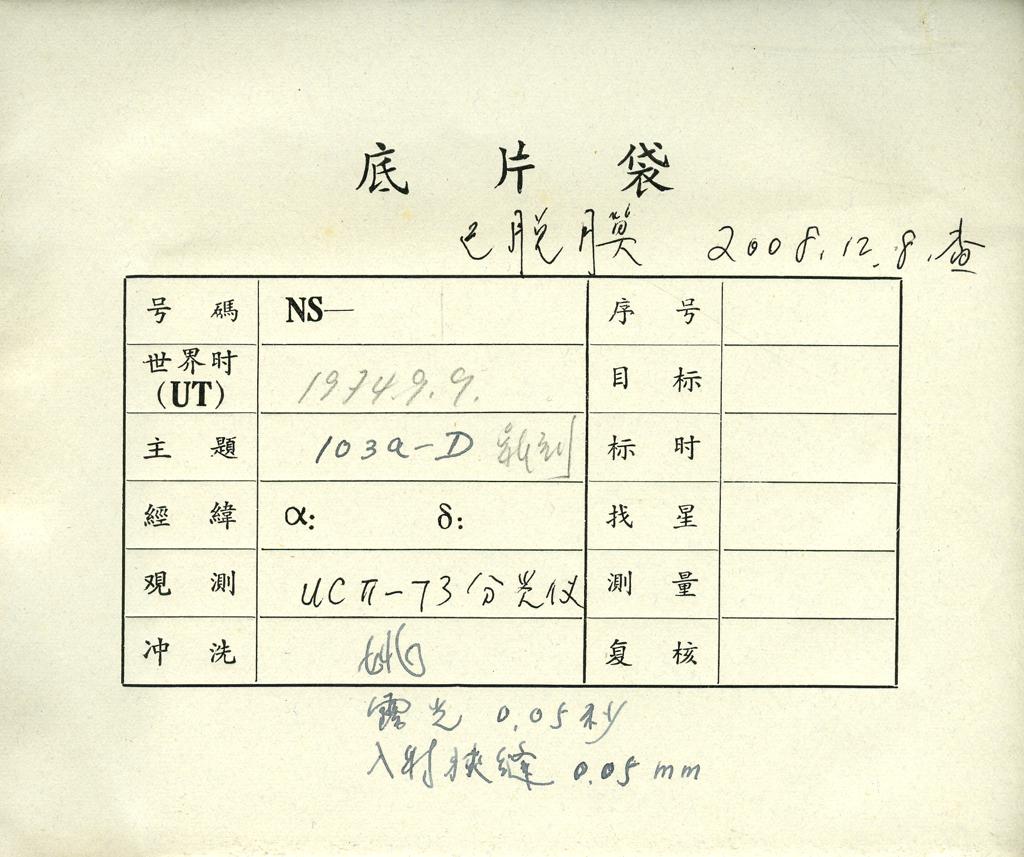 底 片 袋
已脱膜 2008.12.8.查
号 碼 NS— 序 号
世界时 (UT) 1974.9.9. 目 标
主 題 103a-D 标 时
經 緯 α: δ: 找 星
观 测 UCП-73分光仪 测 量
冲 洗 复 核
露光 0.05秒
入射狭缝 0.05 mm